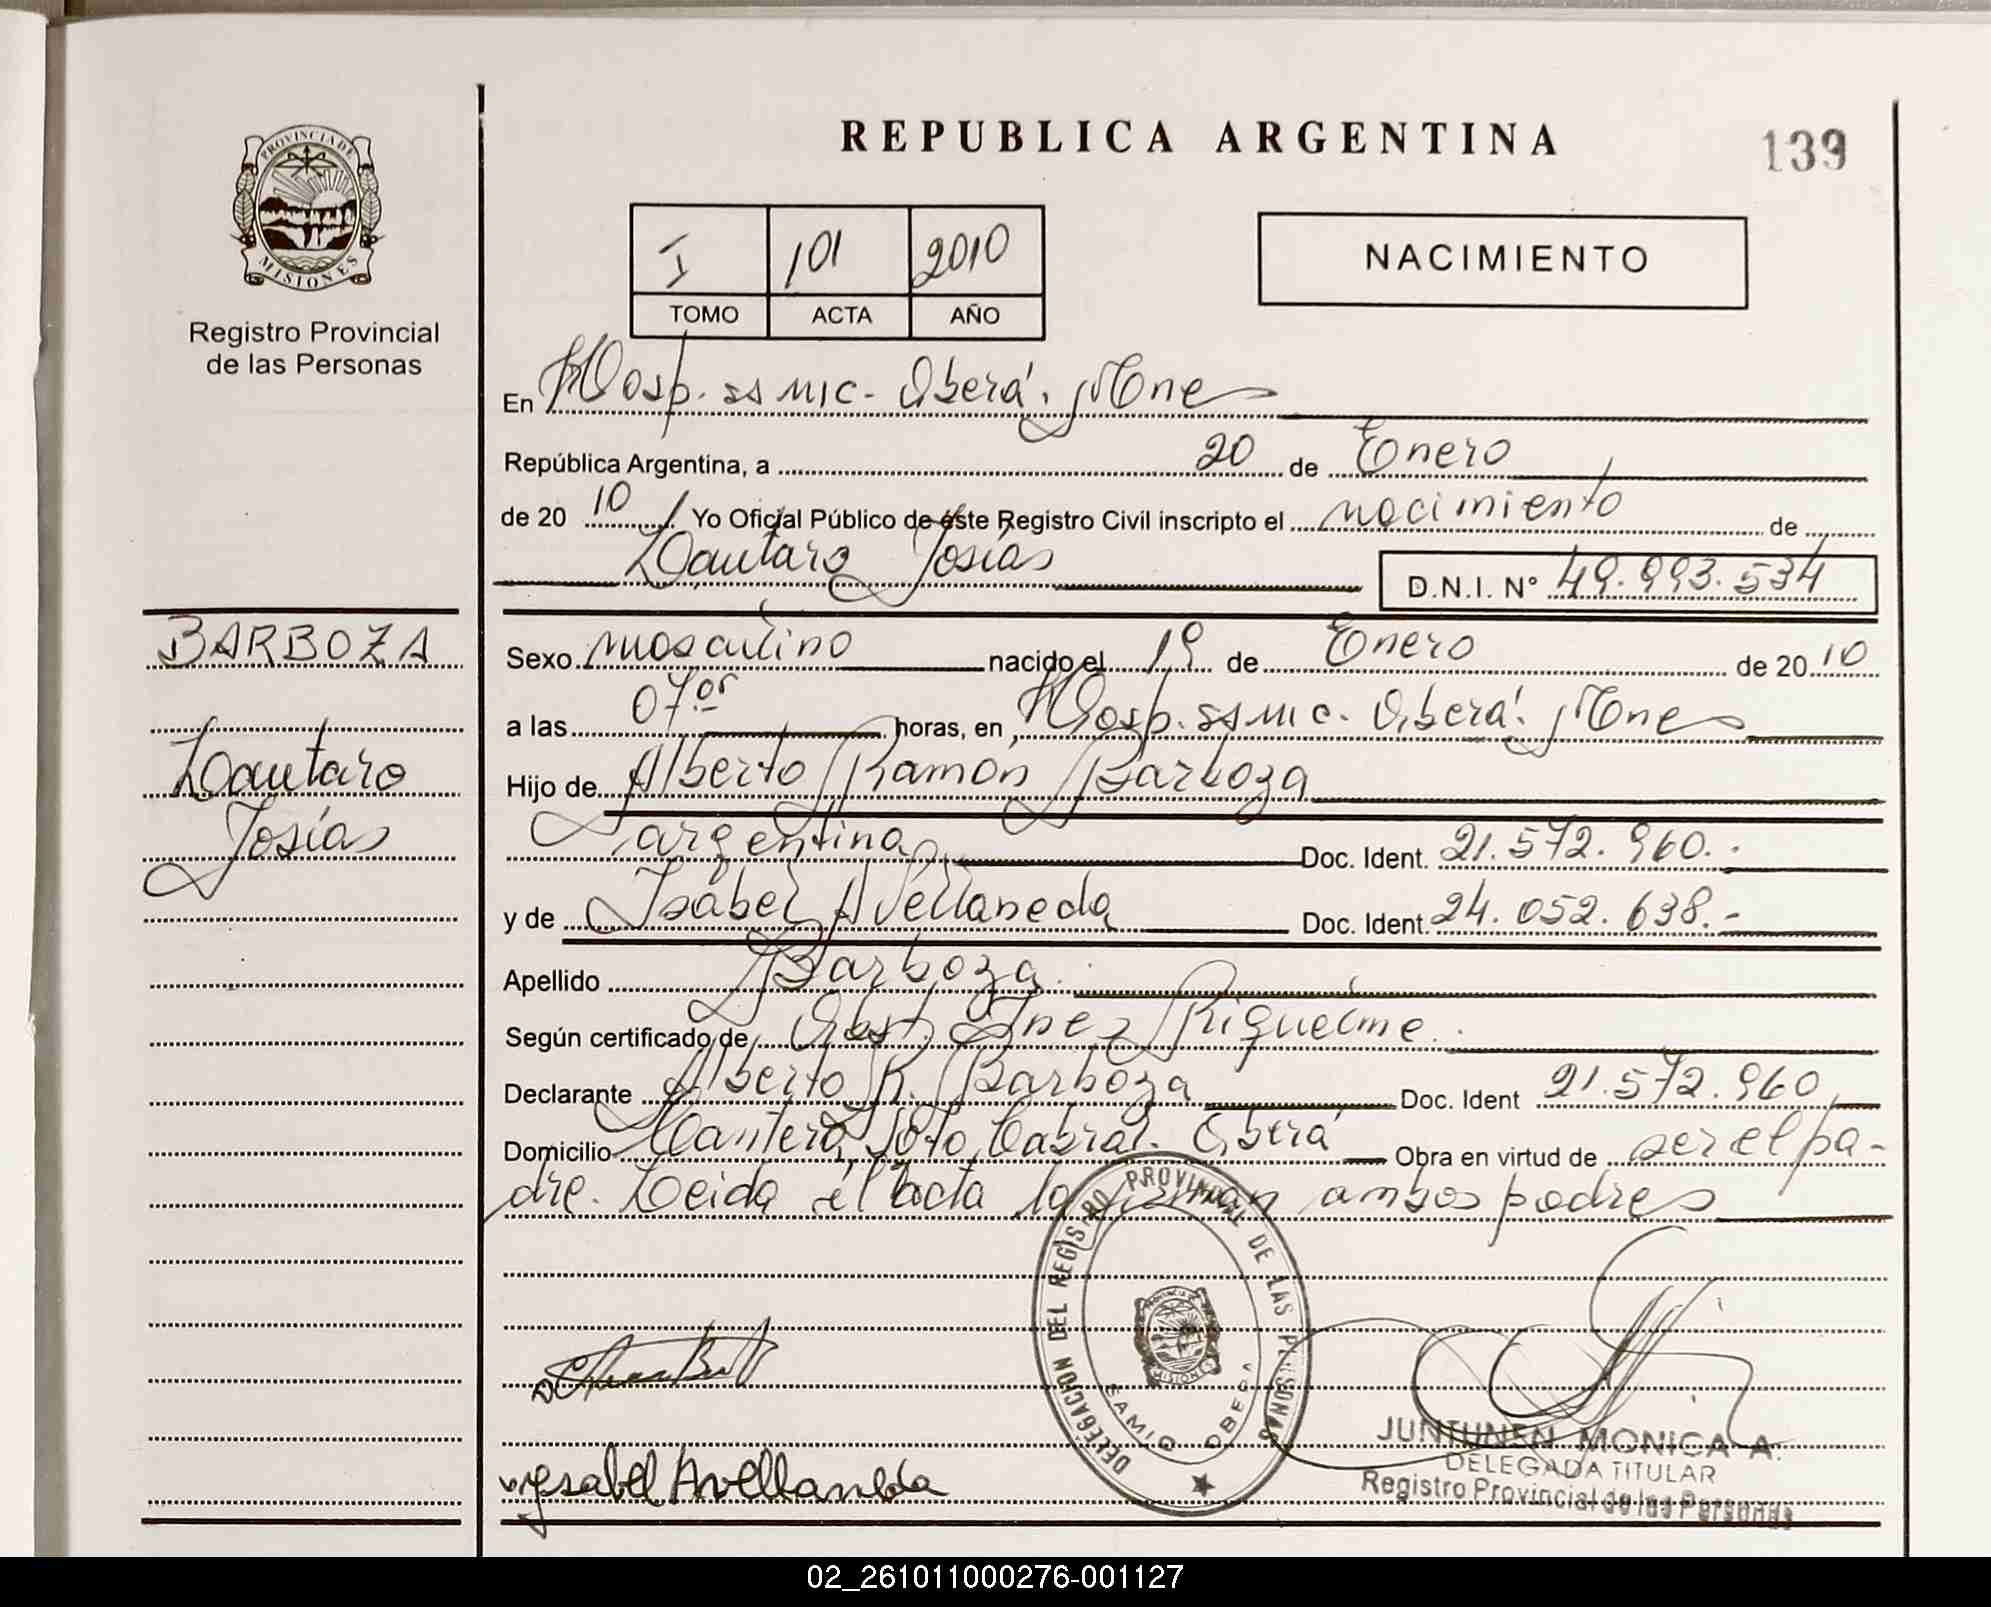 PROVINCIA DE
MISIONES
Registro Provincial
de las Personas
BARBOZA
Lautaro
Josías
REPUBLICA ARGENTINA
139
I 101 2010
TOMO ACTA AÑO
NACIMIENTO
En Hosp. ss mic. Oberá. Mnes
República Argentina, a 20 de Enero
de 20 10 Yo Oficial Público de éste Registro Civil inscripto el nacimiento de
Lautaro Josías
D.N.I. N° 49.993.534
Sexo masculino nacido el 19 de Enero de 20 10
a las 07 horas, en Hosp. ss mic. Oberá. Mnes
Hijo de Alberto Ramón Barboza
argentina Doc. Ident. 21.572.960.-
y de Isabel Avellaneda Doc. Ident. 24.052.638.-
Apellido Barboza
Según certificado de Obst. Inez Riquelme.
Declarante Alberto R. Barboza Doc. Ident 21.572.960
Domicilio Cantera Soto, Cabral. Oberá Obra en virtud de ser el pa-
dre. Leida el acta la firman ambos padres
DELEGACION DEL REGISTRO PROVINCIAL DE LAS PERSONAS
OBERA
Ysabel Avellaneda
JUNTUNEN MONICA A.
DELEGADA TITULAR
Registro Provincial de las Personas
02_261011000276-001127